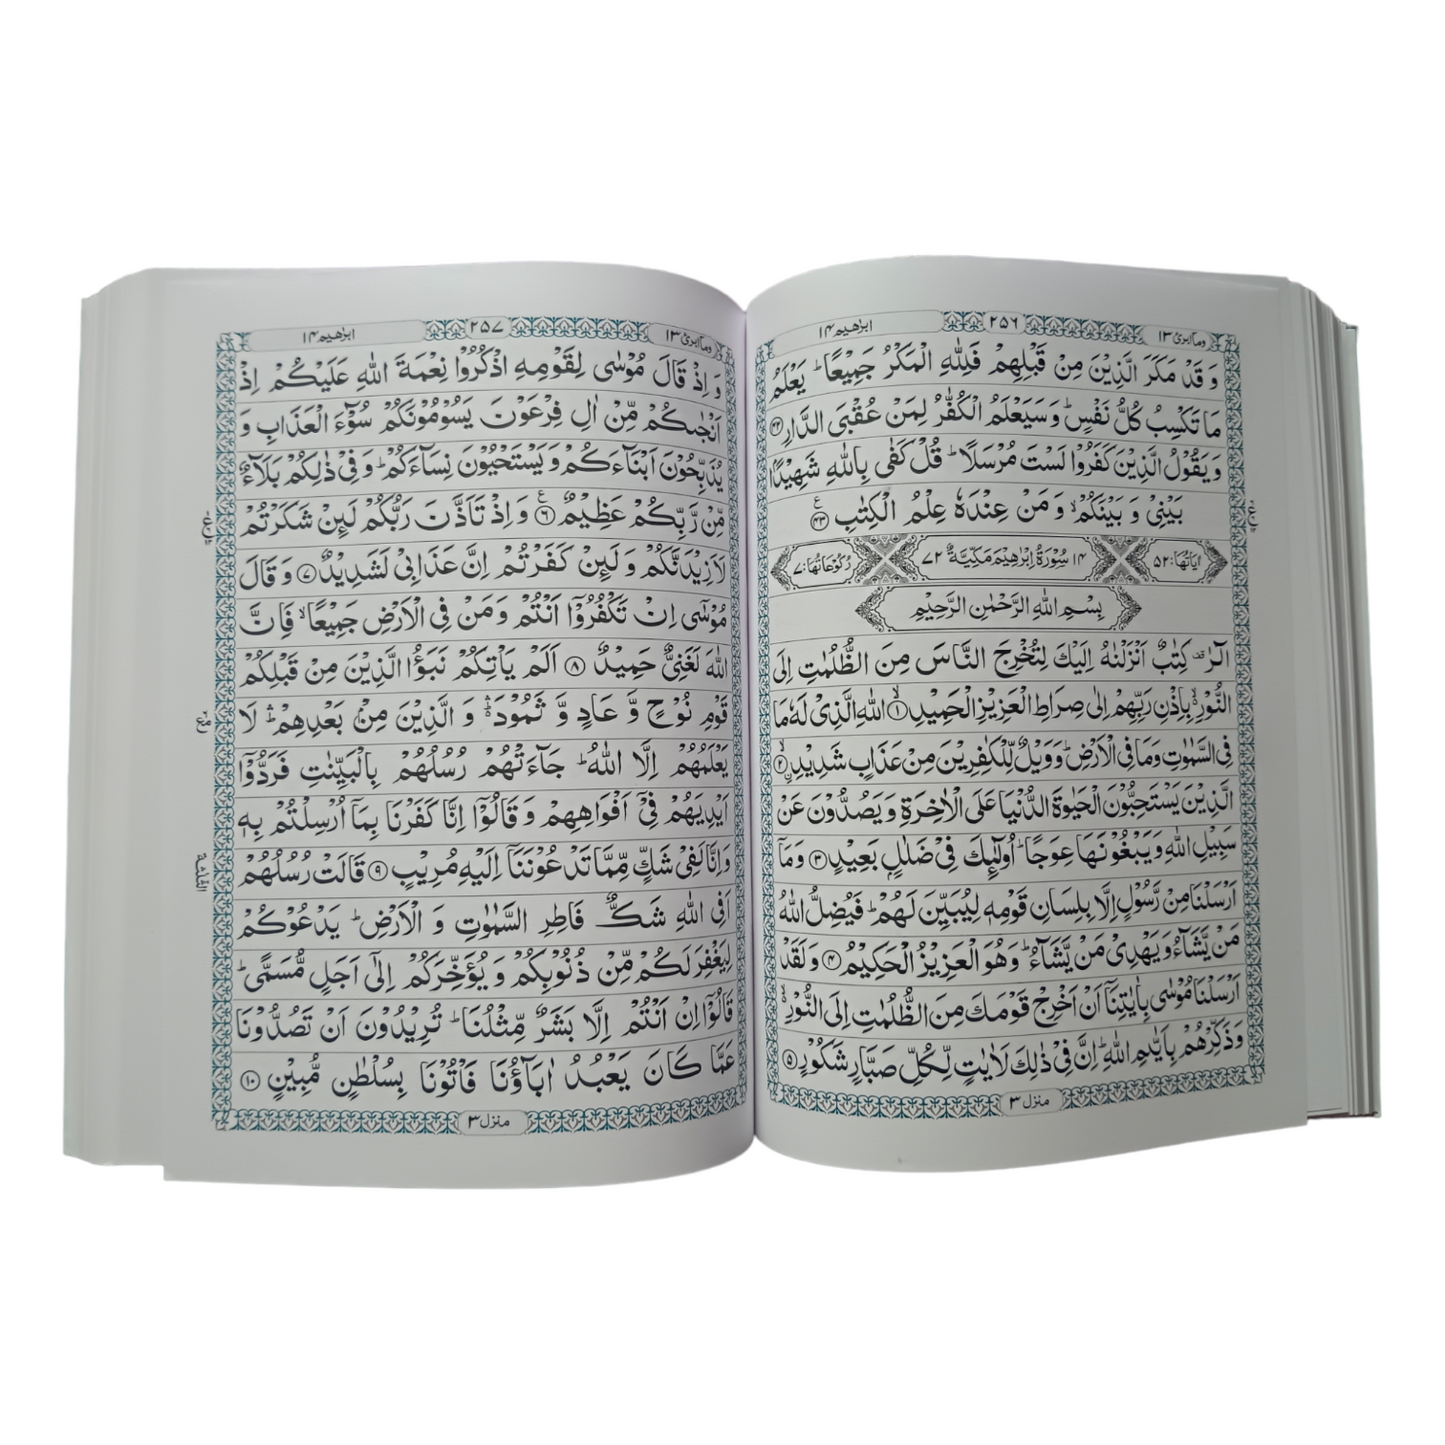 وماابرئ ۱۳
۲۵۶
ابرٰهيم ۱۴
وَ قَدْ مَكَرَ الَّذِيْنَ مِنْ قَبْلِهِمْ فَلِلّٰهِ الْمَكْرُ جَمِيْعًا ؕ يَعْلَمُ
مَا تَكْسِبُ كُلُّ نَفْسٍ ؕ وَ سَيَعْلَمُ الْكُفّٰرُ لِمَنْ عُقْبَى الدَّارِ ۴۲
وَ يَقُوْلُ الَّذِيْنَ كَفَرُوْا لَسْتَ مُرْسَلًا ؕ قُلْ كَفٰى بِاللّٰهِ شَهِيْدًۢا
بَيْنِيْ وَ بَيْنَكُمْ ۙ وَ مَنْ عِنْدَهٗ عِلْمُ الْكِتٰبِ ۴۳ ع
اٰيَاتُهَا: ۵۲ ۱۴ سُوْرَةُ اِبْرٰهِيْمَ مَكِّيَّةٌ ۷۲ رُكُوْعَاتُهَا: ۷
بِسْمِ اللّٰهِ الرَّحْمٰنِ الرَّحِيْمِ
الٓرٰ قف كِتٰبٌ اَنْزَلْنٰهُ اِلَيْكَ لِتُخْرِجَ النَّاسَ مِنَ الظُّلُمٰتِ اِلَى
النُّوْرِ ۙ بِاِذْنِ رَبِّهِمْ اِلٰى صِرَاطِ الْعَزِيْزِ الْحَمِيْدِ ۙ ۱ اللّٰهِ الَّذِيْ لَهٗ مَا
فِي السَّمٰوٰتِ وَ مَا فِي الْاَرْضِ ؕ وَ وَيْلٌ لِّلْكٰفِرِيْنَ مِنْ عَذَابٍ شَدِيْدِ ۙ ۲
الَّذِيْنَ يَسْتَحِبُّوْنَ الْحَيٰوةَ الدُّنْيَا عَلَى الْاٰخِرَةِ وَ يَصُدُّوْنَ عَنْ
سَبِيْلِ اللّٰهِ وَ يَبْغُوْنَهَا عِوَجًا ؕ اُولٰٓئِكَ فِيْ ضَلٰلٍۭ بَعِيْدٍ ۳ وَ مَاۤ
اَرْسَلْنَا مِنْ رَّسُوْلٍ اِلَّا بِلِسَانِ قَوْمِهٖ لِيُبَيِّنَ لَهُمْ ؕ فَيُضِلُّ اللّٰهُ
مَنْ يَّشَآءُ وَ يَهْدِيْ مَنْ يَّشَآءُ ؕ وَ هُوَ الْعَزِيْزُ الْحَكِيْمُ ۴ وَ لَقَدْ
اَرْسَلْنَا مُوْسٰى بِاٰيٰتِنَاۤ اَنْ اَخْرِجْ قَوْمَكَ مِنَ الظُّلُمٰتِ اِلَى النُّوْرِ ۙ
وَ ذَكِّرْهُمْ بِاَيّٰىمِ اللّٰهِ ؕ اِنَّ فِيْ ذٰلِكَ لَاٰيٰتٍ لِّكُلِّ صَبَّارٍ شَكُوْرٍ ۵
منزل ۳
وماابرئ ۱۳
۲۵۷
ابرٰهيم ۱۴
وَ اِذْ قَالَ مُوْسٰى لِقَوْمِهِ اذْكُرُوْا نِعْمَةَ اللّٰهِ عَلَيْكُمْ اِذْ
اَنْجٰىكُمْ مِّنْ اٰلِ فِرْعَوْنَ يَسُوْمُوْنَكُمْ سُوْٓءَ الْعَذَابِ وَ
يُذَبِّحُوْنَ اَبْنَآءَكُمْ وَ يَسْتَحْيُوْنَ نِسَآءَكُمْ ؕ وَ فِيْ ذٰلِكُمْ بَلَآءٌ
مِّنْ رَّبِّكُمْ عَظِيْمٌ ۶ ع وَ اِذْ تَاَذَّنَ رَبُّكُمْ لَئِنْ شَكَرْتُمْ
لَاَزِيْدَنَّكُمْ وَ لَئِنْ كَفَرْتُمْ اِنَّ عَذَابِيْ لَشَدِيْدٌ ۷ وَ قَالَ
مُوْسٰۤى اِنْ تَكْفُرُوْۤا اَنْتُمْ وَ مَنْ فِي الْاَرْضِ جَمِيْعًا ۙ فَاِنَّ
اللّٰهَ لَغَنِيٌّ حَمِيْدٌ ۸ اَلَمْ يَاْتِكُمْ نَبَؤُا الَّذِيْنَ مِنْ قَبْلِكُمْ
قَوْمِ نُوْحٍ وَّ عَادٍ وَّ ثَمُوْدَ ۛؕ وَ الَّذِيْنَ مِنْۢ بَعْدِهِمْ ۛؕ لَا
يَعْلَمُهُمْ اِلَّا اللّٰهُ ؕ جَآءَتْهُمْ رُسُلُهُمْ بِالْبَيِّنٰتِ فَرَدُّوْۤا
اَيْدِيَهُمْ فِيْۤ اَفْوَاهِهِمْ وَ قَالُوْۤا اِنَّا كَفَرْنَا بِمَاۤ اُرْسِلْتُمْ بِهٖ
وَ اِنَّا لَفِيْ شَكٍّ مِّمَّا تَدْعُوْنَنَاۤ اِلَيْهِ مُرِيْبٍ ۹ قَالَتْ رُسُلُهُمْ
اَفِي اللّٰهِ شَكٌّ فَاطِرِ السَّمٰوٰتِ وَ الْاَرْضِ ؕ يَدْعُوْكُمْ
لِيَغْفِرَ لَكُمْ مِّنْ ذُنُوْبِكُمْ وَ يُؤَخِّرَكُمْ اِلٰۤى اَجَلٍ مُّسَمًّى ؕ
قَالُوْۤا اِنْ اَنْتُمْ اِلَّا بَشَرٌ مِّثْلُنَا ؕ تُرِيْدُوْنَ اَنْ تَصُدُّوْنَا
عَمَّا كَانَ يَعْبُدُ اٰبَآؤُنَا فَاْتُوْنَا بِسُلْطٰنٍ مُّبِيْنٍ ۱۰
منزل ۳